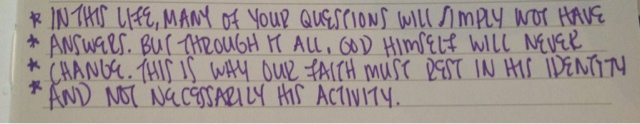 * IN THIS LIFE, MANY OF YOUR QUESTIONS WILL SIMPLY NOT HAVE
* ANSWERS. BUT THROUGH IT ALL, GOD HIMSELF WILL NEVER
* CHANGE. THIS IS WHY OUR FAITH MUST REST IN HIS IDENTITY
* AND NOT NECESSARILY HIS ACTIVITY.